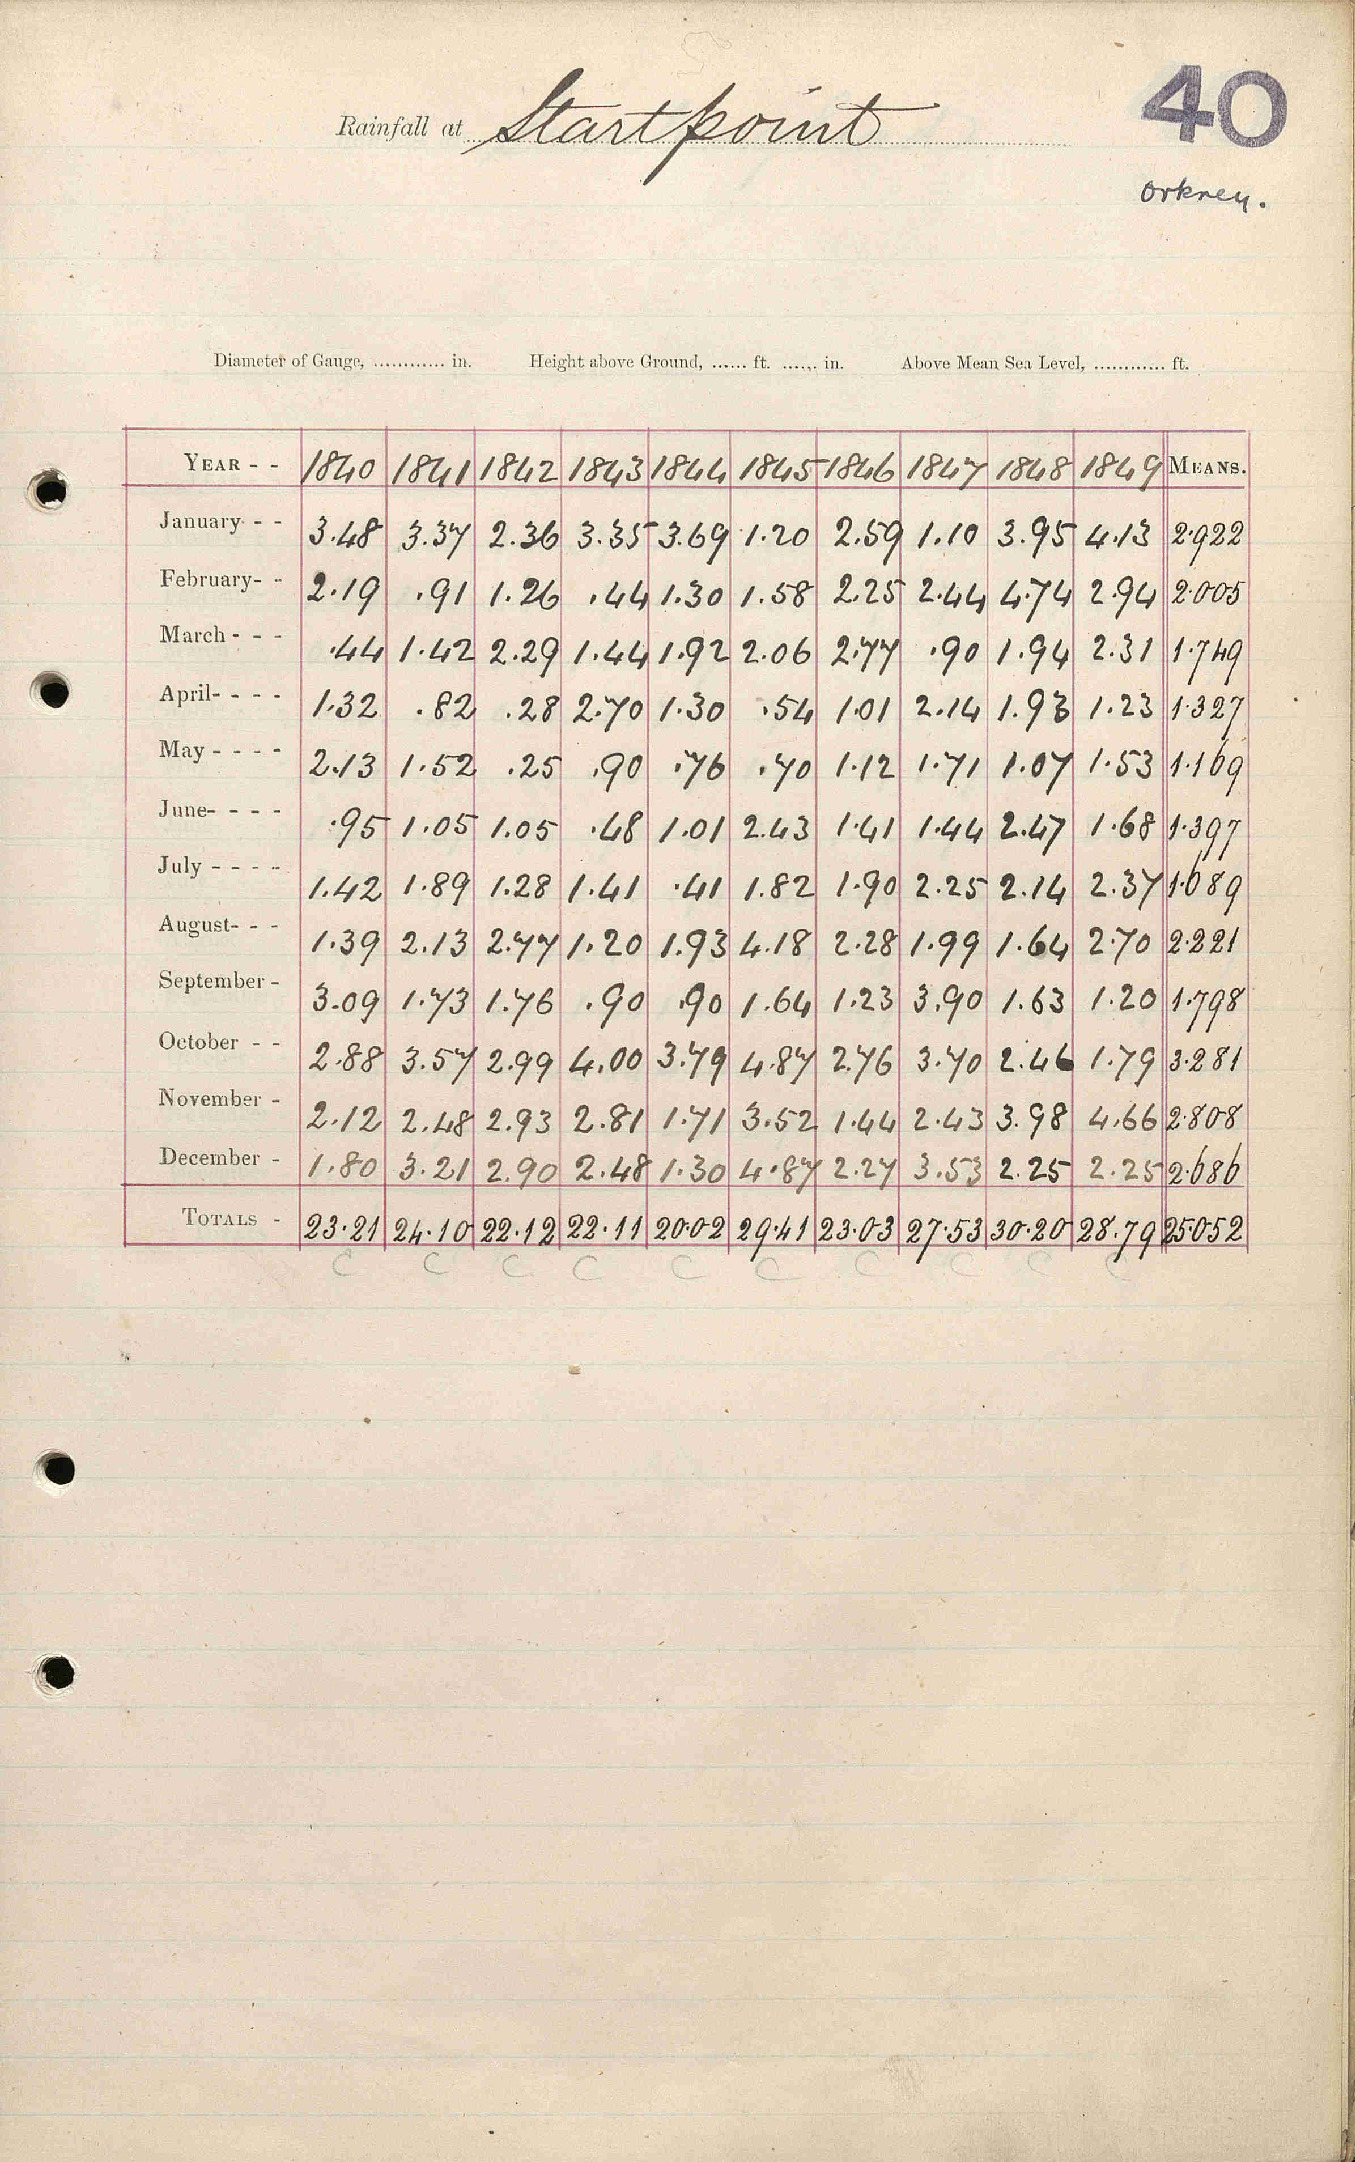 40
Rainfall at Startpoint
Orkney.
Diameter of Gauge, ............ in. Height above Ground, ...... ft. ...... in. Above Mean Sea Level, ............ ft.
YEAR - - 1840 1841 1842 1843 1844 1845 1846 1847 1848 1849 MEANS.
January - - 3.48 3.37 2.36 3.35 3.69 1.20 2.59 1.10 3.95 4.13 2.922
February- - 2.19 .91 1.26 .44 1.30 1.58 2.25 2.44 4.74 2.94 2.005
March - - - .44 1.42 2.29 1.44 1.92 2.06 2.77 .90 1.94 2.31 1.749
April- - - - 1.32 .82 .28 2.70 1.30 .54 1.01 2.14 1.93 1.23 1.327
May - - - - 2.13 1.52 .25 .90 .76 .70 1.12 1.71 1.07 1.53 1.169
June- - - - .95 1.05 1.05 .48 1.01 2.43 1.41 1.44 2.47 1.68 1.397
July - - - - 1.42 1.89 1.28 1.41 .41 1.82 1.90 2.25 2.14 2.37 1.689
August- - - 1.39 2.13 2.77 1.20 1.93 4.18 2.28 1.99 1.64 2.70 2.221
September - 3.09 1.73 1.76 .90 .90 1.64 1.23 3.90 1.63 1.20 1.798
October - - 2.88 3.57 2.99 4.00 3.79 4.87 2.76 3.70 2.46 1.79 3.281
November - 2.12 2.48 2.93 2.81 1.71 3.52 1.44 2.43 3.98 4.66 2.808
December - 1.80 3.21 2.90 2.48 1.30 4.87 2.27 3.53 2.25 2.25 2.686
TOTALS - 23.21 24.10 22.12 22.11 20.02 29.41 23.03 27.53 30.20 28.79 25.052
C C C C C C C C C C